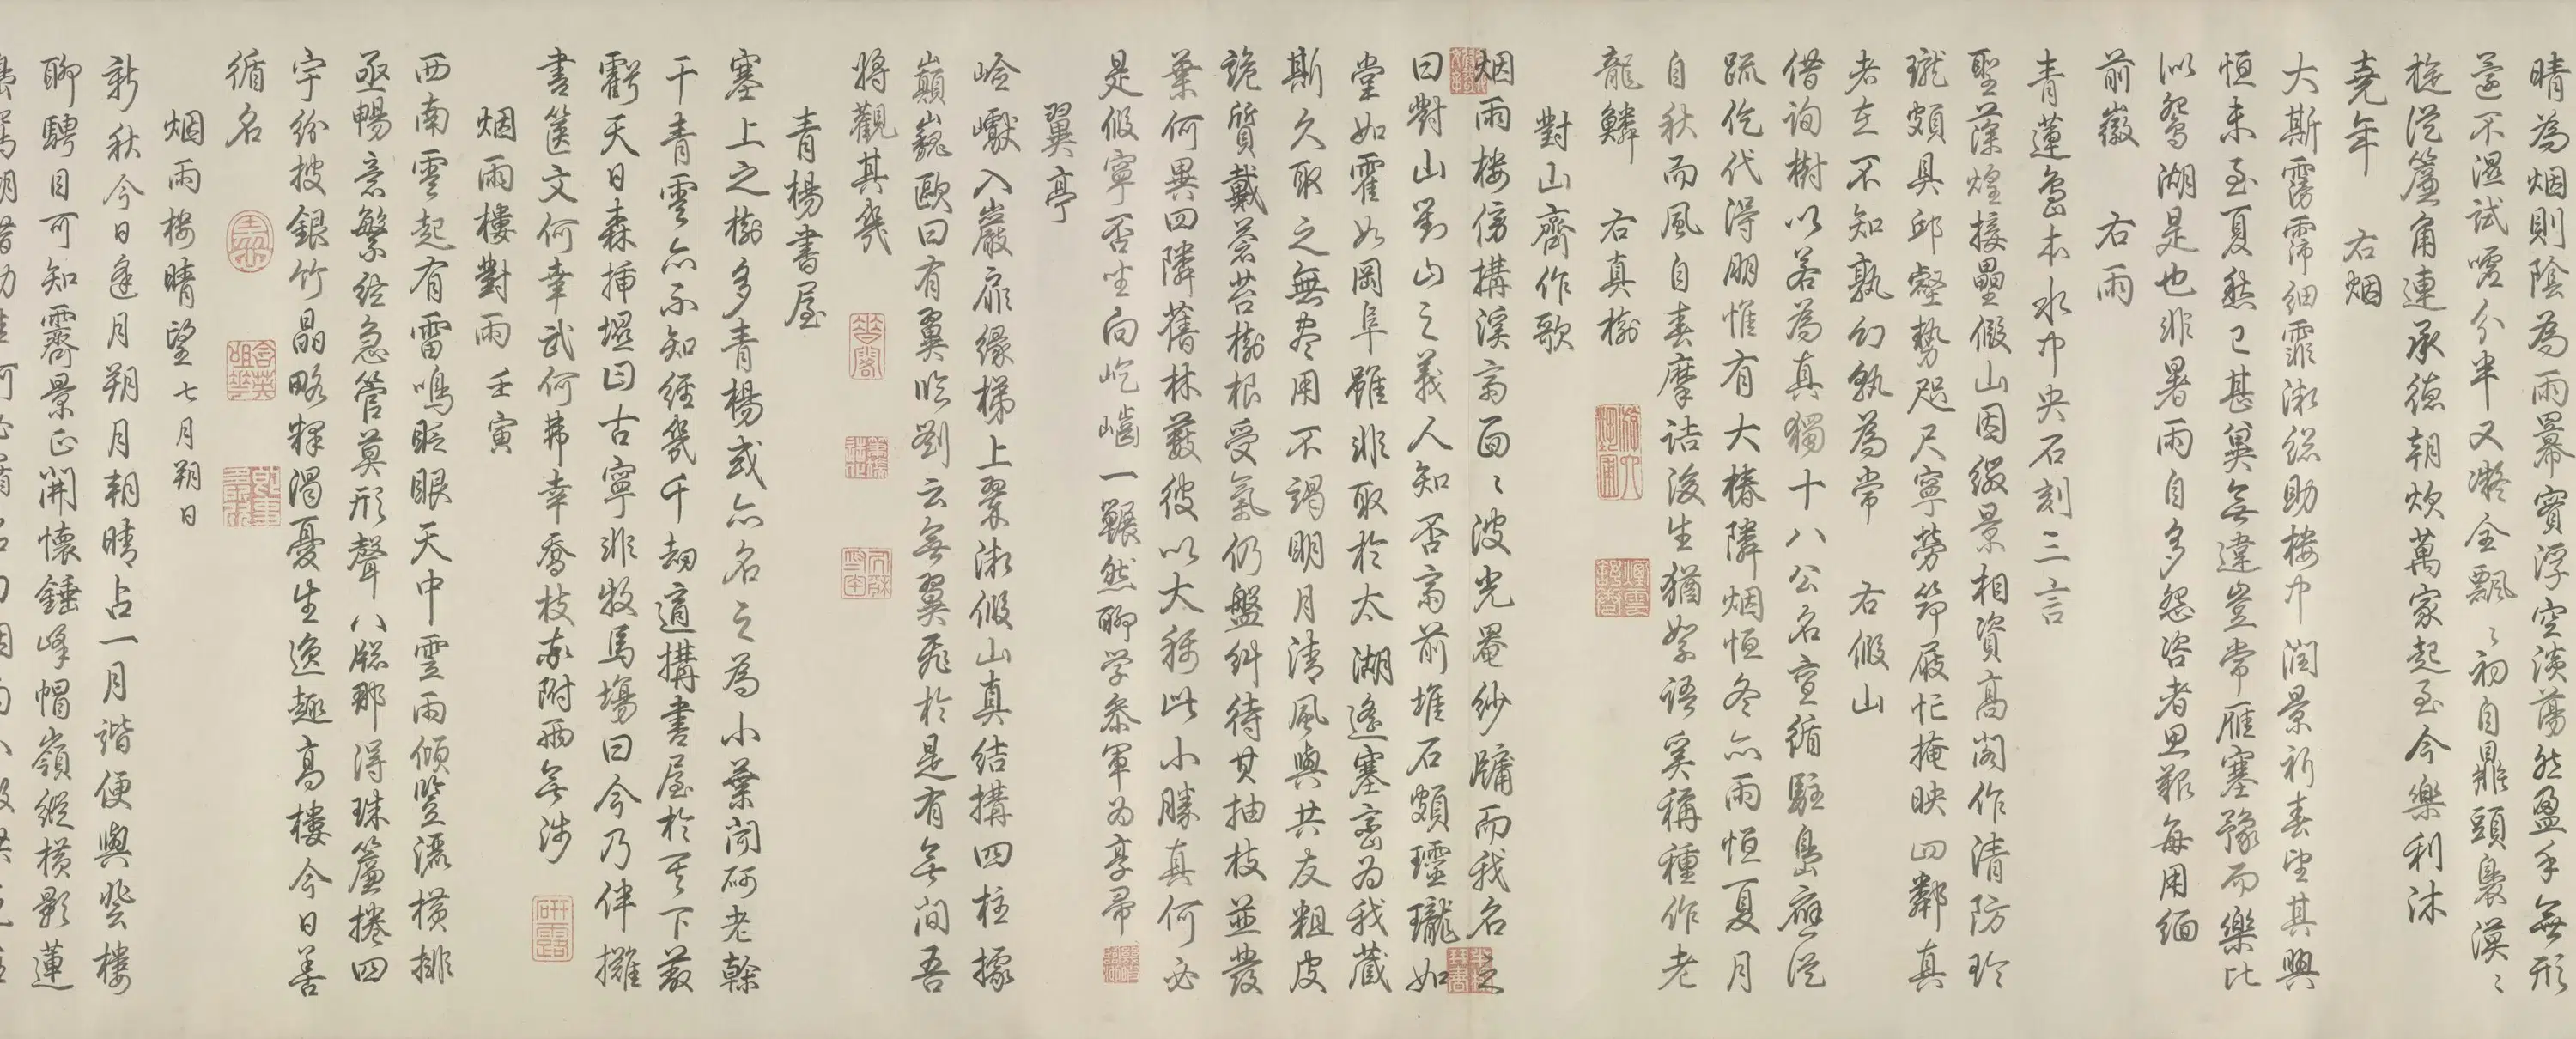 晴為烟則陰為雨冪實浮空淡蕩然盈手無形
還不濕試嘘分半又凝全飄〻初自鼎頭裊漠〻
旋從簷角連承德朝炊萬家起至今樂利沐
堯年　右烟
大斯霶霈細霏微總助樓中潤景祈春望其興
恒未至夏愁已甚莫無違豈常雁塞豫而樂比
似鴛湖是也非暑雨自多怨咨者思艱每用緬
前徽　右雨
青蓮島本水中央石刻三言
聖藻煌接壘假山因綴景相資高閣作清防玲
瓏頗具邱壑勢咫尺寧勞笻屐忙掩映四鄰真
者在不知孰幻孰為常　右假山
借詢樹以若為真獨十八公名亶循駐島應從
疏佗代得朋惟有大椿隣烟恒冬亦雨恒夏月
自秋而風自春摩詰後生猶絮語奚稱種作老
龍鱗　右真樹
對山齋作歌
烟雨樓傍搆溪齋面〻波光罨紗牖而我名之
曰對山對山之義人知否齋前堆石頗瓏瓏如
堂如霍如岡阜雖非取於太湖遙塞巒為我藏
斯久取之無盡用不竭明月清風與共友粗皮
詭質戴蒼苔樹根受氣仍盤糾待其抽枝並發
葉何異四隣舊林藪彼以大稱此小勝真何必
是假寧否坐向屹𡺎一囅然聊學參軍為享帚
翼亭
嶮巘入巖扉緣梯上翠微假山真結搆四柱據
巔巍歐曰有翼臨劉云無翼飛於是有無間吾
將觀其幾
青楊書屋
塞上之樹多青楊或亦名之為小葉閱砢老榦
干青雲亦不知經幾千刼適搆書屋於其下蔽
虧天日森插堞曰古寧非牧馬場曰今乃伴攤
書篋文何幸武何弗幸喬枝森附兩無涉
烟雨樓對雨　壬寅
西南雲起有雷鳴眨眼天中雲雨傾豎灑橫排
亟暢意繁絃急管莫形聲八牕那得珠簾捲四
宇紛披銀竹晶略釋濁憂生逸趣高樓今日善
循名
烟雨樓晴望　七月朔日
新秋今日逢月朔月朝晴占一月諧便與登樓
聊騁目可知霽景正開懷錘峰帽嶺縱橫影蓮